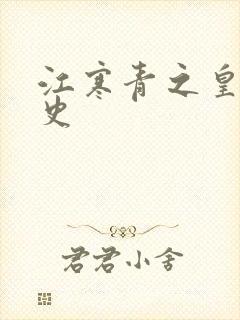 江寒青之皇
史
君君小舍